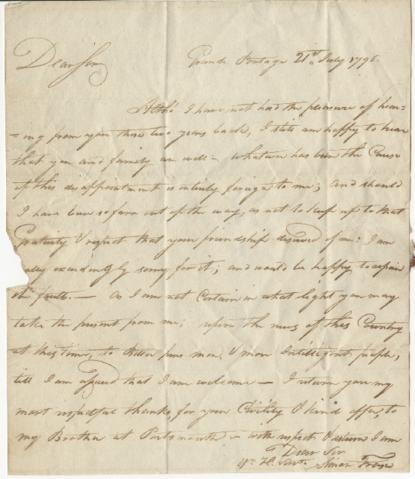 Dear Sir
Grand Portage 21st July 1795.
Altho' I have not had the pleasure of hear-
=ing from you these two years back, I still am happy to hear
that you and family are well – whatever has been the Cause
of this disappointment is entirely foreign to me; and should
I have been so far out of the way, as not to keep up to that
Gratitude & respect that your friendship deserved of me: I am
exceedingly sorry for it; and would be happy to repair
the fault. — As I am not Certain in what light you may
take the present from me: upon the news of this Country
at this time, to better pens more, & more Intelligent people,
till I am assured that I am welcome — I return you my
most respectful thanks, for your Civility & kind offers, to
my Brother at Portsmouth – with respect & esteem I am
Dear Sir
Yr. H. Servt. Simon Fraser